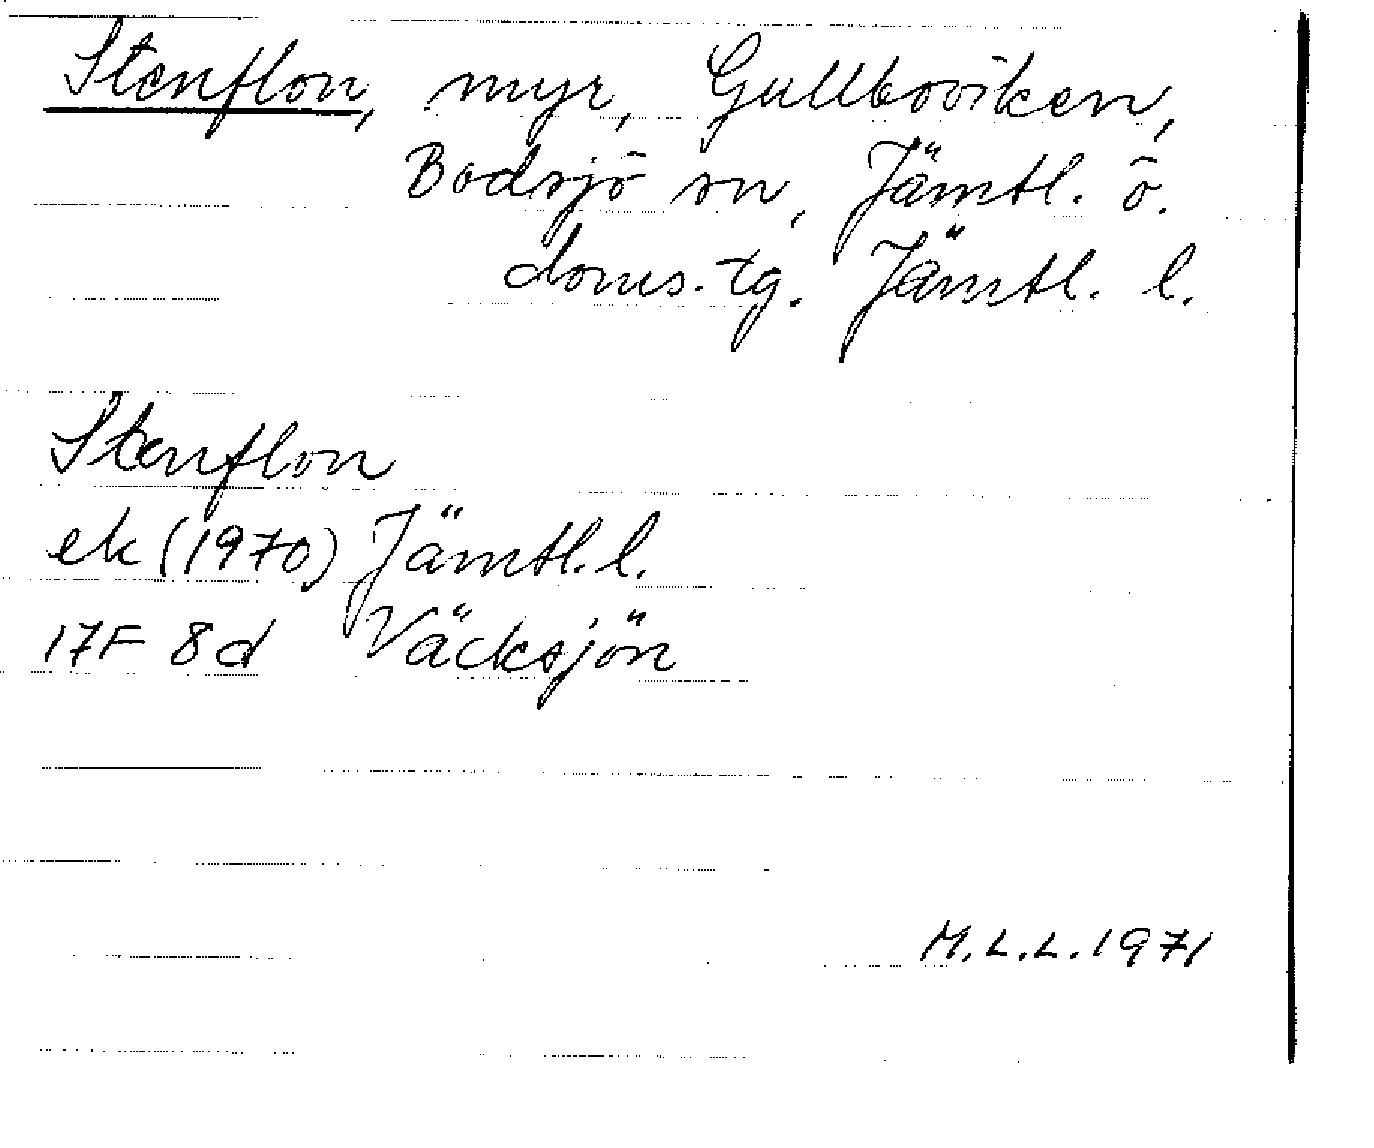 Stenflon, myr, Gullboviken,
Bodsjö sn, Jämtl. ö.
doms. tg. Jämtl. l.
Stenflon
ek (1970) Jämtl. l.
17F 8d Väcksjön
M.L.L. 1971